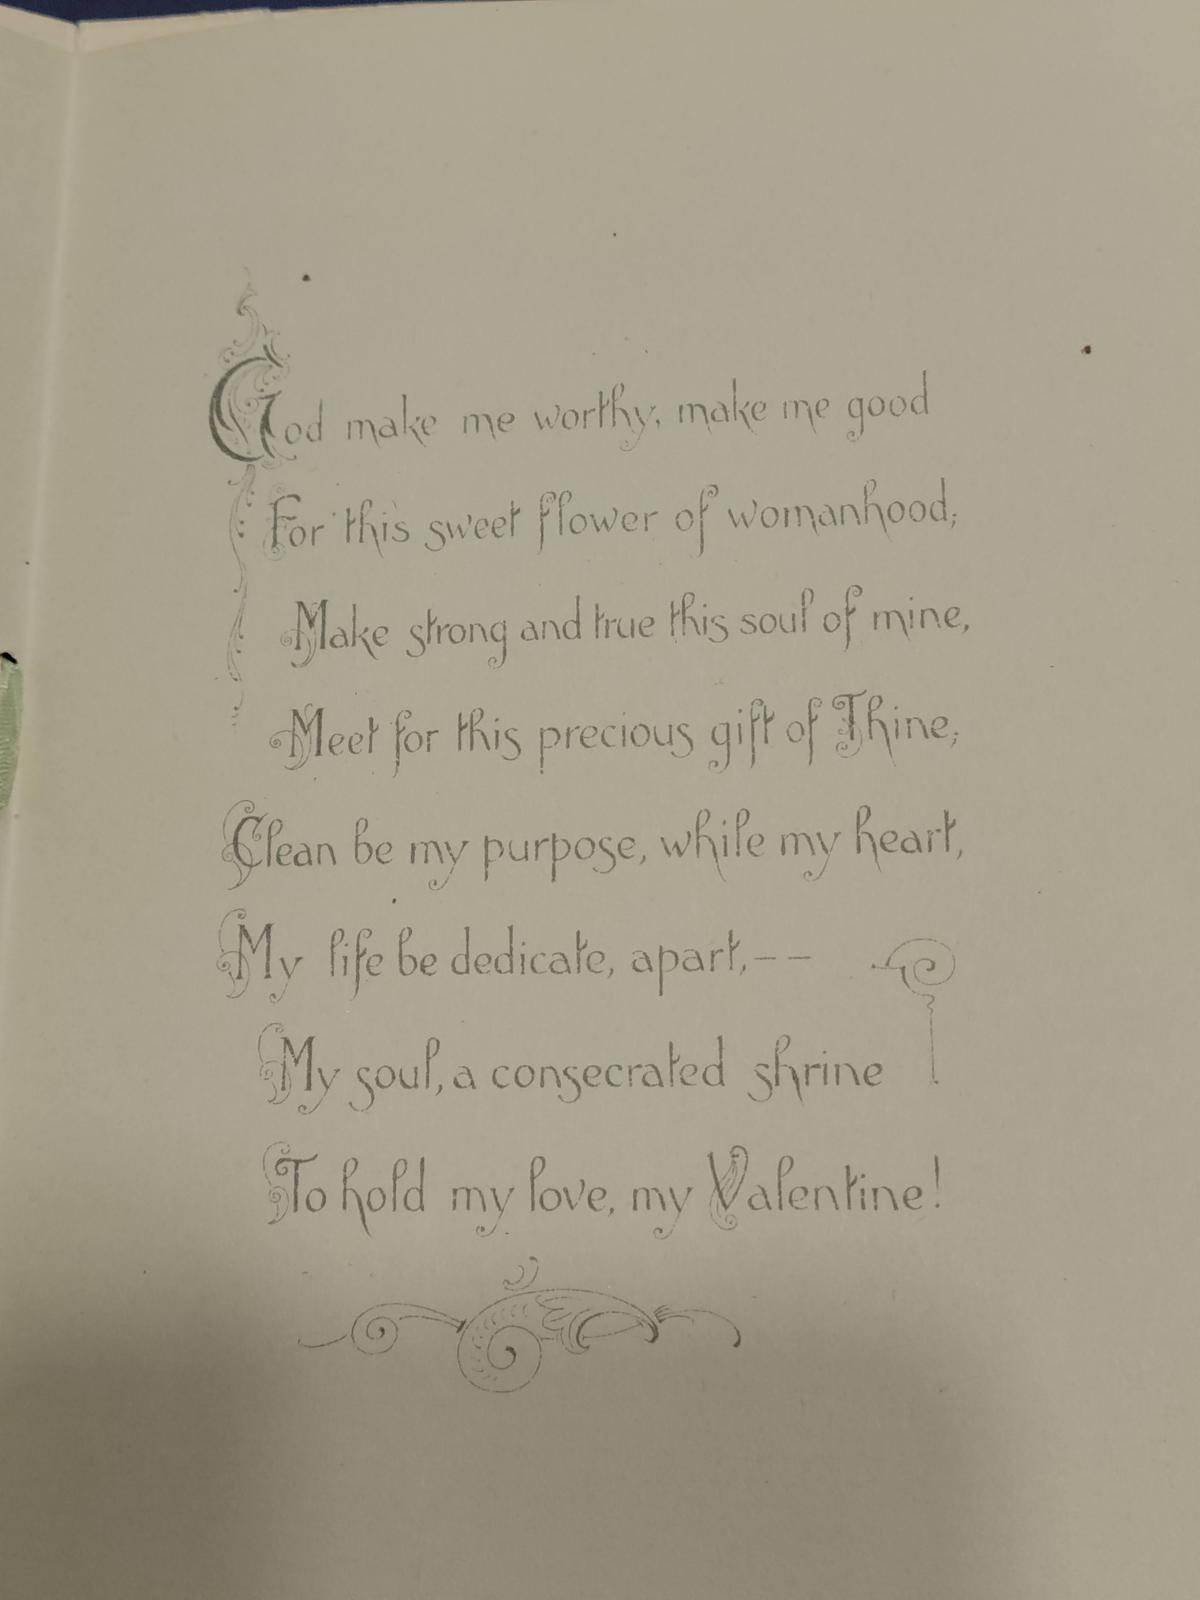 God make me worthy, make me good
For this sweet flower of womanhood;
Make strong and true this soul of mine,
Meet for this precious gift of Thine;
Clean be my purpose, while my heart,
My life be dedicate, apart,--
My soul, a consecrated shrine
To hold my love, my Valentine!